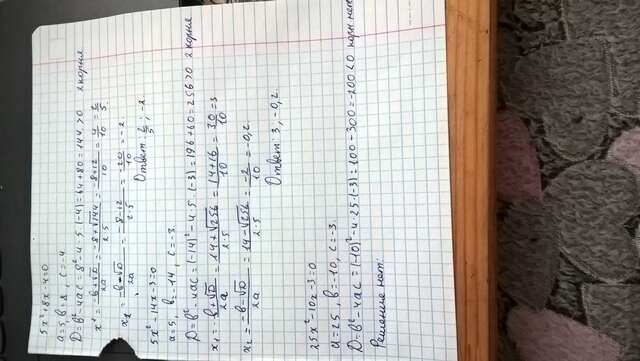 5x²+8x-4=0
a=5, в=8, c=-4
D=в²-4ac=8²-4·5·(-4)=64+80=144>0 2 корня
x¹=(-в+√D)/2a=(-8+√144)/2·5=(-8+12)/10=4/10=2/5
x₂=(-в-√D)/2a=(-8-12)/2·5=-20/10=-2.
Ответ: 2/5; -2.
5x²-14x-3=0
a=5, в=-14, c=-3.
D=в²-4ac=(-14)²-4·5·(-3)=196+60=256>0 2 корня
x₁=(-в+√D)/2a=(14+√256)/2·5=(14+16)/10=30/10=3
x₂=(-в-√D)/2a=(14-√256)/2·5=-2/10=-0,2.
Ответ: 3, -0,2.
25x²-10x-3=0
a=25, в=-10, c=-3.
D=в²-4ac=(-10)²-4·25·(-3)=100-300=-200<0 корн. нет
Решение нет.